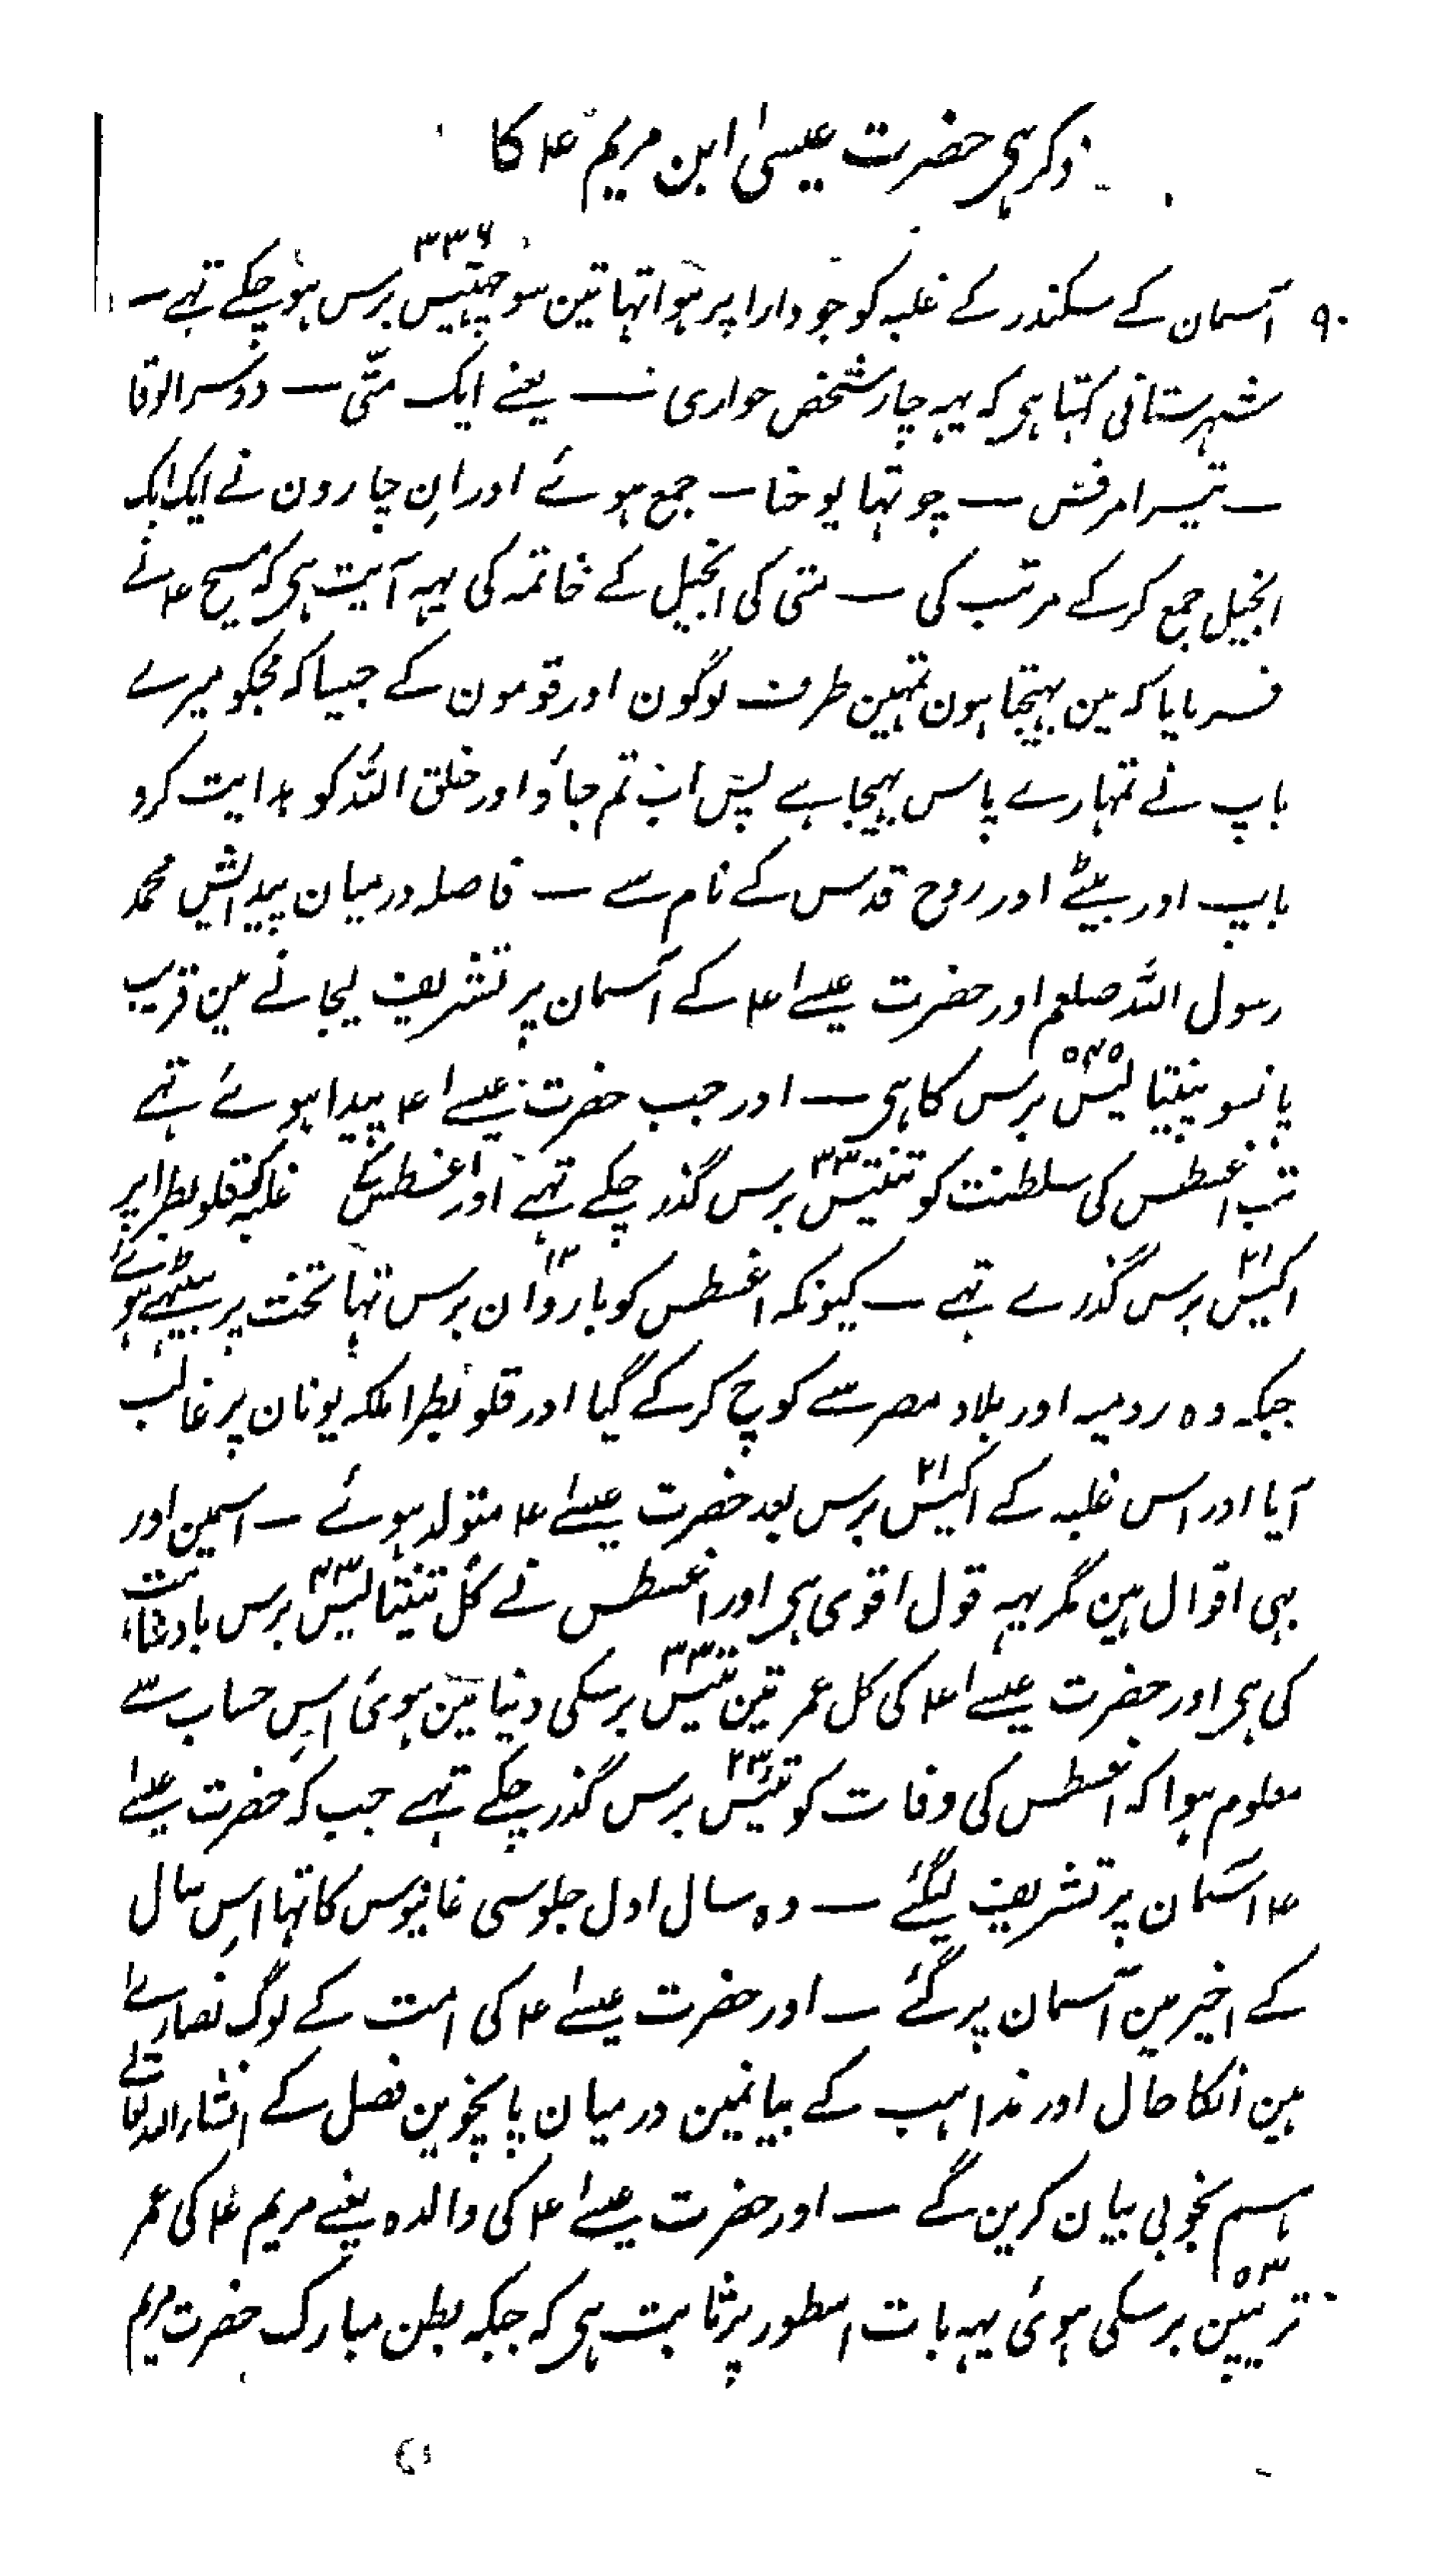 ذکر ہی حضرت عیسیٰ ابن مریم ۴ کا
۳۳۶
۹۰ آسمان کے سکندر کے غلبہ کو جو دارا پر ہوا تہا تین سو چہتیس برس ہو چکے تہے ــ
شہرستانی کہتا ہی کہ یہہ چار شخص حواری ــ یعنے ایک متّی ــ دوسرا لوقا
ــ تیسرا مرقس ــ چوتہا یوحنا ــ جمع ہوئے اور اِن چارون نے ایک ایک
انجیل جمع کرکے مرتب کی ــ متی کی انجیل کے خاتمہ کی یہہ آیت ہی کہ مسیح ۴ نے
فرمایا کہ مین بہیجتا ہون تمہین طرف لوگون اور قومون کے جیسا کہ مجکو میرے
باپ نے تمہارے پاس بہیجا ہے پس اب تم جاؤ اور خلق اللہ کو ہدایت کرو
باپ اور بیٹے اور روح قدس کے نام سے ــ فاصلہ درمیان پیدایش محمد
رسول اللہ صلعم اور حضرت عیسےٰ ۴ کے آسمان پر تشریف لیجانے مین قریب
۵۴۵
پانسو پینتالیس برس کا ہی ــ اور جب حضرت عیسےٰ ۴ پیدا ہوئے تہے
۳۳
تب اغسطس کی سلطنت کو تنتیس برس گذر چکے تہے اور اغسطس کے غلبہ کو قلوبطرا پر
۲۱ ۱۲
اکیس برس گذرے تہے ــ کیونکہ اغسطس کو باروان برس تہا تخت پر بیٹہے ہوئے
جبکہ وہ رومیہ اور بلاد مصر سے کوچ کرکے گیا اور قلوبطرا ملکہ یونان پر غالب
۲۱
آیا اور اس غلبہ کے اکیس برس بعد حضرت عیسےٰ ۴ متولد ہوئے ــ اسمین اور
۴۳
بہی اقوال ہین مگر یہہ قول اقوی ہی اور اغسطس نے کل تنتالیس برس بادشاہت
۳۳
کی ہی اور حضرت عیسےٰ ۴ کی کل عمر تین تیس برسکی دنیا مین ہوئی اِس حساب سے
۲۳
معلوم ہوا کہ اغسطس کی وفات کو تیئس برس گذر چکے تہے جب کہ حضرت عیسےٰ
۴ آسمان پر تشریف لیگئے ــ وہ سال اول جلوسی غانیوس کا تہا اِس سال
کے اخیر مین آسمان پر گئے ــ اور حضرت عیسےٰ ۴ کی امت کے لوگ نصارےٰ
ہین انکا حال اور مذاہب کے بیانمین درمیان پانچوین فصل کے انشاء اللہ تعالے
ہم بخوبی بیان کرین گے ــ اور حضرت عیسےٰ ۴ کی والدہ یعنے مریم ۴ کی عمر
۵۳
ترپین برسکی ہوئی یہہ بات اسطور پر ثابت ہی کہ جبکہ بطن مبارک حضرت مریم